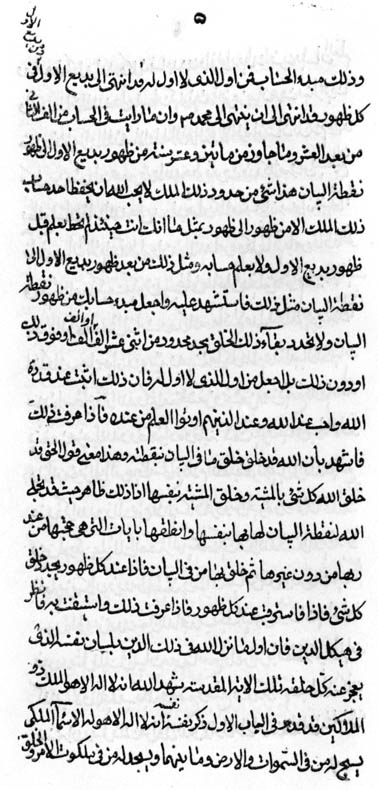 ٥
الاول
من بديع
وذلك مبدء الحساب فمن اول الذى لا اول له قد انتهى الى بديع الاول فى
كل ظهور قد انتهى الى ان ينتهى الى محمد ص وان ما رايت فى الحساب من الف الثانى
من بعد العشر وما جاوز من مأتين وعشر سنة من ظهور بديع الاول الى ظهور
نقطة البيان هذا شئ من حدود ذلك الملك لا يحب الله ان يحفظ احد حساب
ذلك الملك الا من ظهور الى ظهور بمثل ما انك انت حينئذ لم تحط بعلم قبل
ظهور بديع الاول ولا بعلم حسابه ومثل ذلك من بعد ظهور بديع الاول الى
نقطة البيان مثل ذلك فاستشهد عليه واجعل مبدء حسابك من ظهور نقطة
البيان ولا تحدد بقاء ذلك الخلق بحد محدود من اثنى عشر الف الف او فوق ذلك
او دون ذلك بل اجعل من اول الذى لا اول له فان ذلك اثبت عند قدرة
الله واحب عند الله وعند الذينهم اوتوا العلم من عنده فاذا عرفت ذلك
فاشهد بأن الله قد خلق خلق ما فى البيان بنقطته وهذا معنى قول الحق قد
خلق الله كل شئ بالمشية وخلق المشية بنفسها اذ ذلك ظاهر حينئذ قد تجلى
الله لنقطة البيان لها بها بنفسها وانطقها بايات التى هى حجتها من عند
ربها من دون غيرها ثم خلق بها من فى البيان فاذا عند كل ظهور يجدد خلق
كل شئ فاذا عند كل ظهور فاذا عرفت ذلك واستيقنت به فانظر
فى هيكل الدين فان اول ما نزل الله فى ذلك الدين بلسان نفسه الذى
يعجز عن كل خلقه تلك الاية المقدسة شهد الله انه لا اله الا هو له الملك
قد قدر فى الباب الاول ذكر نفسه انه لا اله الا هو له الاسماء الحسنى
يسبح له من فى السموات والارض وما بينهما ويسجد له من فى ملكوت الامر والخلق